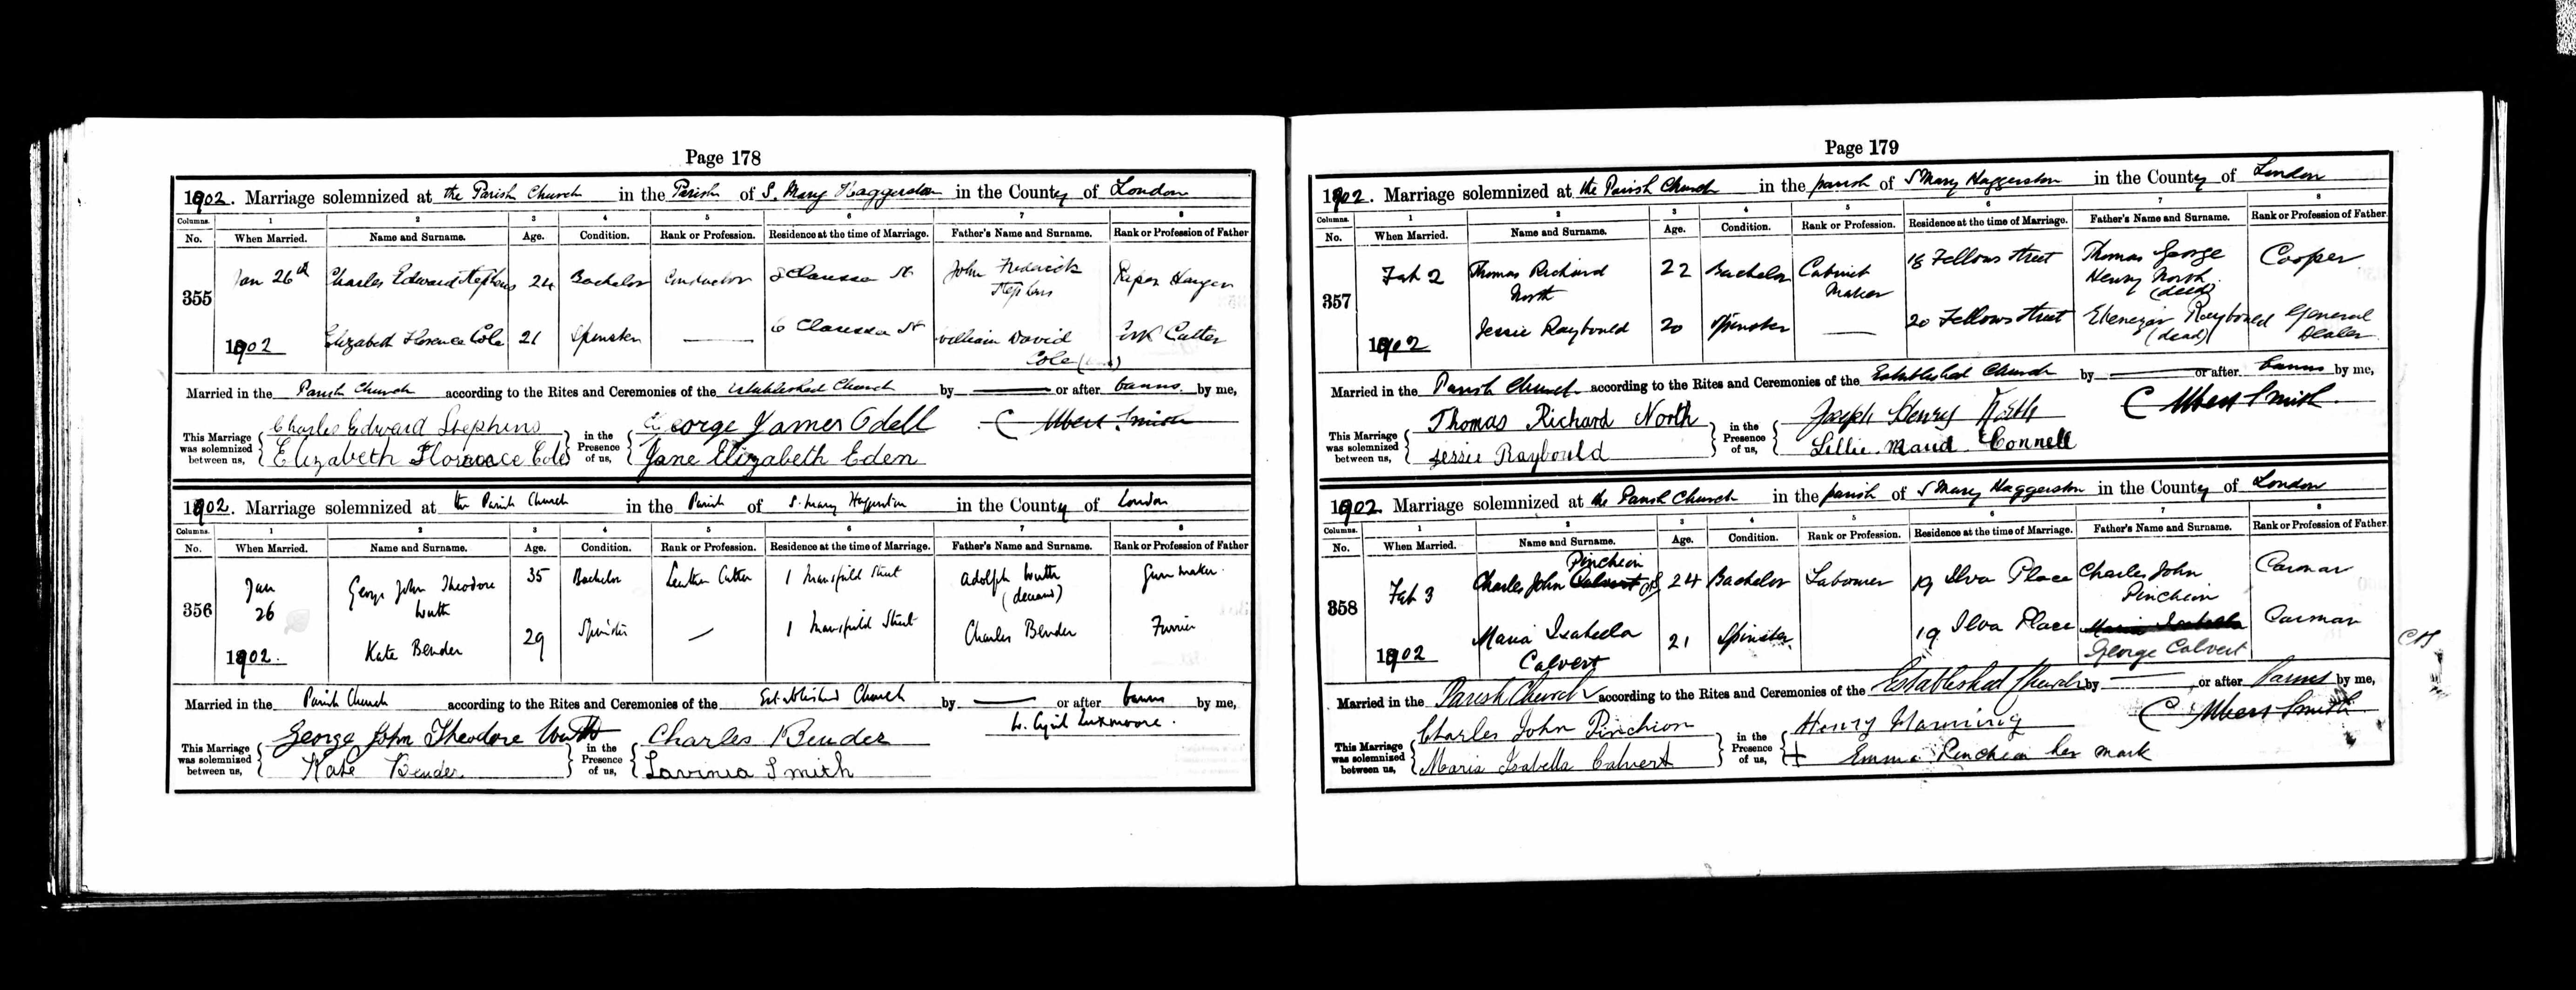 Page 178
1902. Marriage solemnized at the Parish Church in the Parish of S. Mary Haggerston in the County of London
Columns. 1 2 3 4 5 6 7 8
No. When Married. Name and Surname. Age. Condition. Rank or Profession. Residence at the time of Marriage. Father's Name and Surname. Rank or Profession of Father
355 Jan 26th Charles Edward Stephens 24 Bachelor Conductor 8 Clarissa St John Frederick Stephens Paper Hanger
1902 Elizabeth Florence Cole 21 Spinster — 6 Clarissa St William David Cole Cutter
Married in the Parish Church according to the Rites and Ceremonies of the Established Church by — or after banns by me,
This Marriage was solemnized between us, Charles Edward Stephens in the Presence of us, George James Odell C Albert Smith
Elizabeth Florence Cole Jane Elizabeth Eden
1902. Marriage solemnized at the Parish Church in the Parish of S. Mary Haggerston in the County of London
Columns. 1 2 3 4 5 6 7 8
No. When Married. Name and Surname. Age. Condition. Rank or Profession. Residence at the time of Marriage. Father's Name and Surname. Rank or Profession of Father
356 Jan 26 George John Theodore Wuth 35 Bachelor Leather Cutter 1 Mansfield Street Adolph Wuth (deceased) Gun maker
1902. Kate Bender 29 Spinster — 1 Mansfield Street Charles Bender Furrier
Married in the Parish Church according to the Rites and Ceremonies of the Established Church by — or after banns by me,
This Marriage was solemnized between us, George John Theodore Wuth in the Presence of us, Charles Bender Cyril Luxmoore.
Kate Bender Lavinia Smith
Page 179
1902. Marriage solemnized at the Parish Church in the parish of S Mary Haggerston in the County of London
Columns. 1 2 3 4 5 6 7 8
No. When Married. Name and Surname. Age. Condition. Rank or Profession. Residence at the time of Marriage. Father's Name and Surname. Rank or Profession of Father.
357 Feb 2 Thomas Richard North 22 Bachelor Cabinet Maker 18 Fellows Street Thomas George Henry North (dead) Cooper
1902 Jessie Raybould 20 Spinster — 20 Fellows Street Ebenezer Raybould (dead) General Dealer
Married in the Parish Church according to the Rites and Ceremonies of the Established Church by — or after banns by me,
This Marriage was solemnized between us, Thomas Richard North in the Presence of us, Joseph Henry North C Albert Smith
Jessie Raybould Lillie Maud Connell
1902. Marriage solemnized at the Parish Church in the parish of S Mary Haggerston in the County of London
Columns. 1 2 3 4 5 6 7 8
No. When Married. Name and Surname. Age. Condition. Rank or Profession. Residence at the time of Marriage. Father's Name and Surname. Rank or Profession of Father.
358 Feb 3 Charles John Calvert Pincheon 24 Bachelor Labourer 19 Ilva Place Charles John Pincheon Carman
1902 Maria Isabella Calvert 21 Spinster 19 Ilva Place Maria Isabella George Calvert Carman
Married in the Parish Church according to the Rites and Ceremonies of the Established Church by — or after Banns by me,
This Marriage was solemnized between us, Charles John Pinchion in the Presence of us, Henry Manning C Albert Smith
Maria Isabella Calvert Emma Pincheon her mark